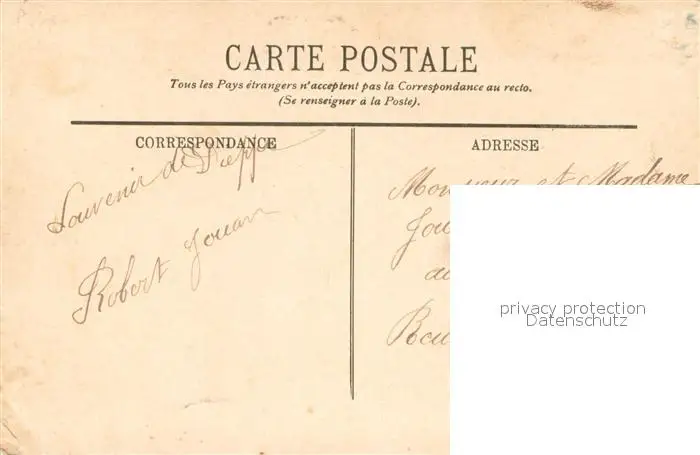 CARTE POSTALE
Tous les Pays étrangers n'acceptent pas la Correspondance au recto.
(Se renseigner à la Poste).
CORRESPONDANCE
Souvenir de Dieppe
Robert Jouan
ADRESSE
Monsieur et Madame
Jou
au
privacy protection
Datenschutz